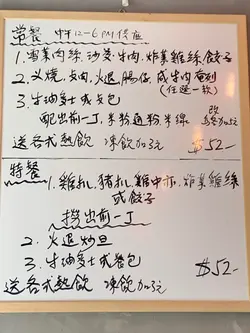 常餐 中午12-6PM供應
1. 雪菜肉絲,沙爹牛肉,炸菜雞絲,餃子
2. 叉燒,午肉,火退,腸仔,咸牛肉,奄列
(任選一款)
3. 牛油多士或歺包
配出前一丁,米粉通粉米線
改烏冬加5元
送各式熱飲 凍飲加3元 $52-
特餐
1. 雞扒,猪扒,雞中亦,炸菜雞絲
或餃子
撈出前一丁
2. 火退炒旦
3. 牛油多士或餐包
送各式熱飲 凍飲加3元 $52-